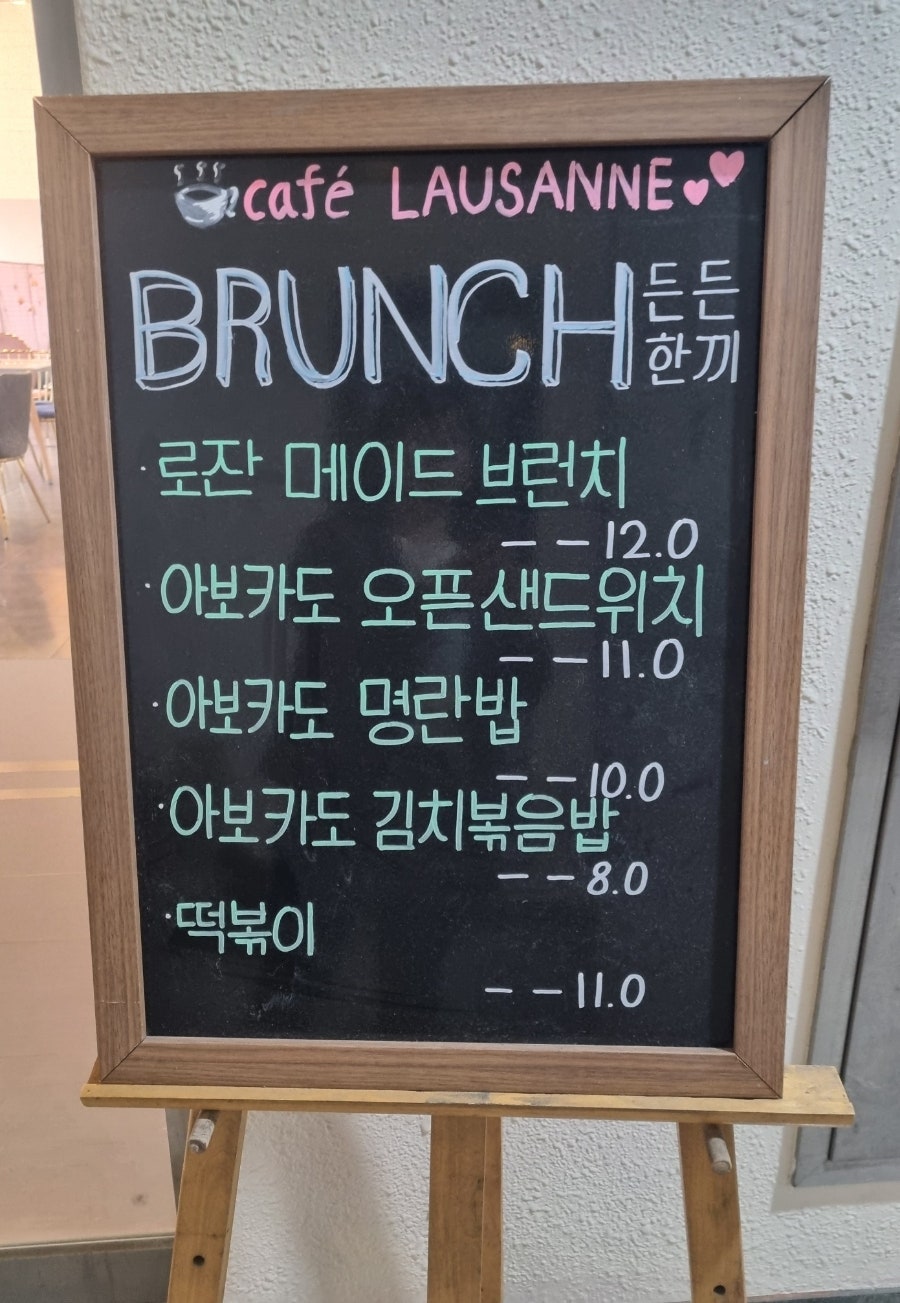 café LAUSANNE
BRUNCH 든든
한끼
· 로잔 메이드 브런치
- - 12.0
· 아보카도 오픈샌드위치
- - 11.0
· 아보카도 명란밥
- - 10.0
· 아보카도 김치볶음밥
- - 8.0
· 떡볶이
- - 11.0